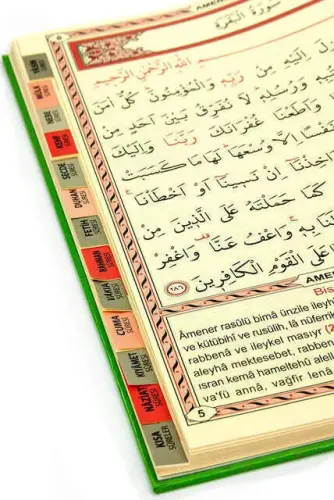 سُورَةُ الْبَقَرَةِ
بِسْمِ اللهِ الرَّحْمٰنِ الرَّحِيمِ
اِلَيْهِ مِنْ رَبِّهِ وَالْمُؤْمِنُونَ كُلٌّ اٰمَنَ
وَرُسُلِهِ لَا نُفَرِّقُ بَيْنَ اَحَدٍ مِنْ
وَاَطَعْنَا غُفْرَانَكَ رَبَّنَا وَاِلَيْكَ
اِلَّا وُسْعَهَا لَهَا مَا كَسَبَتْ
اِنْ نَسِينَا اَوْ اَخْطَأْنَا
كَمَا حَمَلْتَهُ عَلَى الَّذِينَ مِنْ
بِهِ وَاعْفُ عَنَّا وَاغْفِرْ
عَلَى الْقَوْمِ الْكَافِرِينَ ٢٨٦
AMENE
Bis
Âmener rasûlü bimâ ünzile ileyh
ve kütübihî ve rusülih, lâ nüferri
rabbenâ ve ileykel masıyr (2
aleyhâ mektesebet, rabbenâ
ısran kemâ hameltehû aley
va'fü annâ, vağfir lenâ
5
YASİN SÛRESİ
MÜLK SÛRESİ
NEBE SÛRESİ
KEHF SÛRESİ
SECDE SÛRESİ
DUHAN SÛRESİ
FETİH SÛRESİ
RAHMAN SÛRESİ
VAKIA SÛRESİ
CUMA SÛRESİ
KIYAMET SÛRESİ
NAZİAT SÛRESİ
KISA SÛRELER